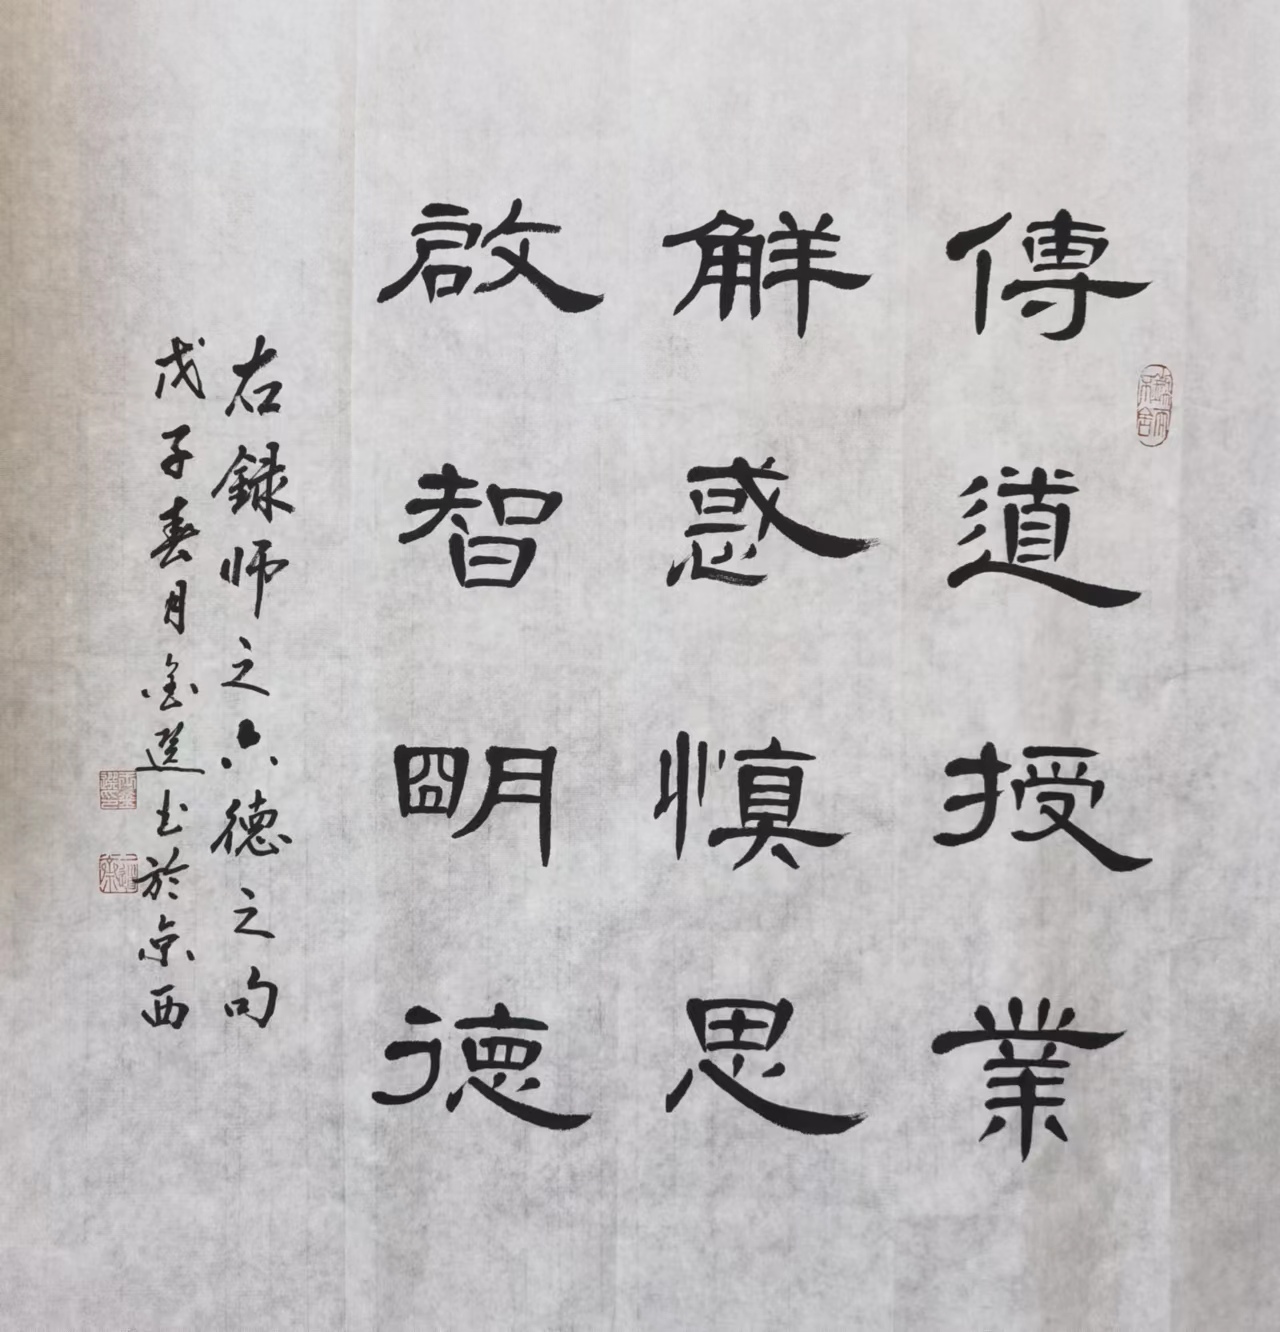 傳道授業
解惑慎思
啟智明德
右錄师之六德之句
戊子春月金選书於京西